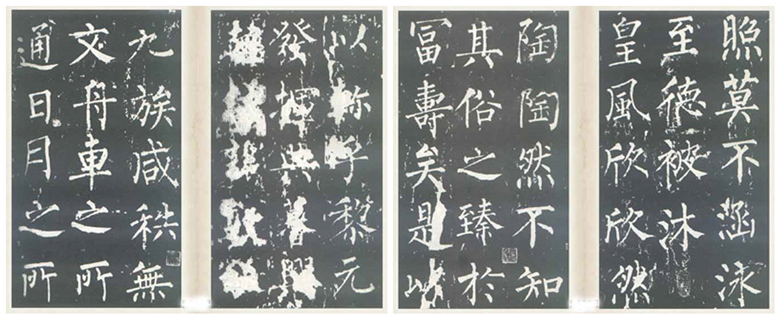 以称乎黎元
發揮典
九族咸秩無
文舟車之所
通日月之所
照莫不涵泳
至德被沐
皇風欣欣然
陶陶然不知
其俗之臻於
冨壽矣是以